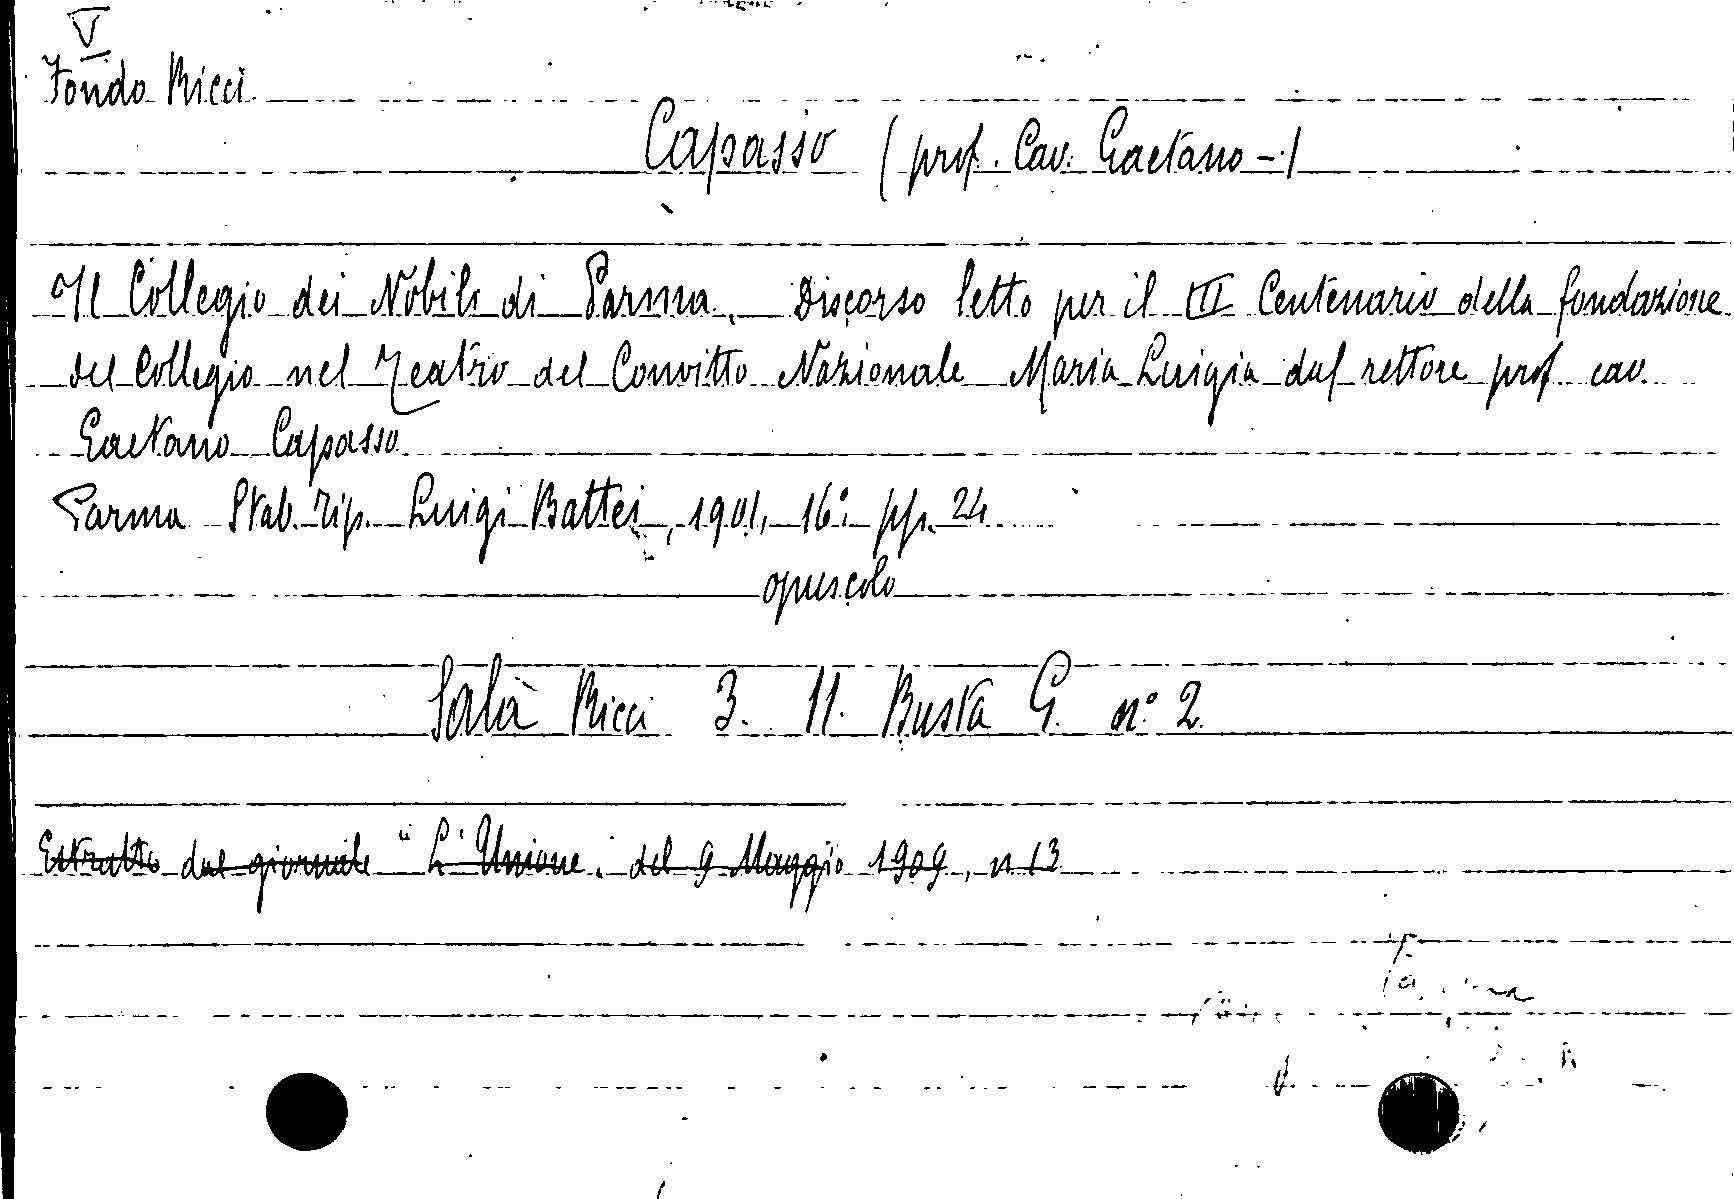 V
Fondo Ricci
Capasso (prof. Cav. Gaetano -)
Il Collegio dei Nobili di Parma. Discorso letto per il III Centenario della fondazione
del Collegio nel Teatro del Convitto Nazionale Maria Luigia dal rettore prof. cav.
Gaetano Capasso
Parma Stab. Tip. Luigi Battei, 1901, 16° pp. 24
opuscolo
Sala Ricci 3. 11. Busta G. n° 2.
Estratto dal giornale "L'Unione" del 9 Maggio 1909, n 13